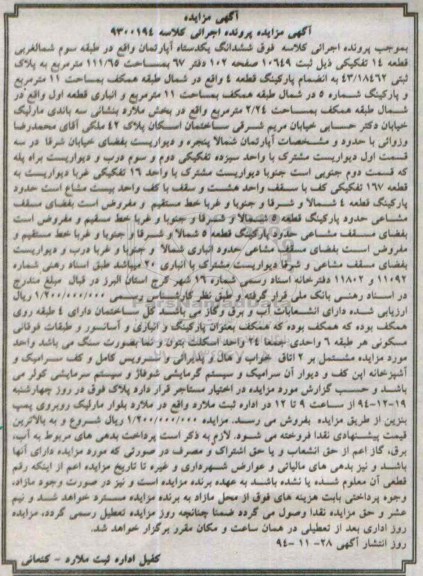 آگهی مزایده
آگهی مزایده پرونده اجرائی کلاسه ۹۳۰۰۱۹۴
بموجب پرونده اجرائی کلاسه فوق ششدانگ یکدستگاه آپارتمان واقع در طبقه سوم شمالغربی
قطعه ۱۴ تفکیکی ذیل ثبت ۱۰۶۴۹ صفحه ۱۰۲ دفتر ۶۷ بمساحت ۱۱۱/۶۵ مترمربع به پلاک
ثبتی ۴۳/۱۸۴۶۲ به انضمام پارکینگ قطعه ۴ واقع در شمال طبقه همکف بمساحت ۱۱ مترمربع
و پارکینگ شماره ۵ در شمال طبقه همکف بمساحت ۱۱ مترمربع و انباری قطعه اول واقع در
شمال طبقه همکف بمساحت ۲/۲۴ مترمربع واقع در بخش ملارد بنشانی سه باندی مارلیک
خیابان دکتر حسابی خیابان مریم شرقی ساختمان اسکان پلاک ۴۲ ملکی آقای محمدرضا
وزوائی با حدود و مشخصات آپارتمان شمالا پنجره و دیواریست بفضای خیابان شرقا در سه
قسمت اول دیواریست مشترک با واحد سیزده تفکیکی دوم و سوم درب و دیواریست براه پله
که قسمت دوم جنوبی است جنوبا دیواریست مشترک با واحد ۱۶ تفکیکی غربا دیواریست به
قطعه ۱۶۷ تفکیکی کف با سقف واحد هشت و سقف با کف واحد بیست مشاع است حدود
پارکینگ قطعه ۴ شمالا و شرقا و جنوبا و غربا خط مستقیم و مفروض است بفضای مسقف
مشاعی حدود پارکینگ قطعه ۵ شمالا و شرقا و جنوبا و غربا خط مستقیم و مفروض است
بفضای مسقف مشاعی حدود پارکینگ قطعه ۵ شمالا و شرقا و جنوبا و غربا خط مستقیم و
مفروض است بفضای مسقف مشاعی حدود انباری شمالا و جنوبا و غربا درب و دیواریست
بفضای مسقف مشاعی و شرقا دیواریست مشترک با انباری ۲۰ میباشد طبق اسناد رهنی شماره
۱۱۰۹۲ و ۱۱۸۰۲ دفترخانه اسناد رسمی شماره ۱۶ شهر کرج استان البرز در قبال مبلغ مندرج
در اسناد رهنی بانک ملی قرار گرفته و طبق نظر کارشناس رسمی ۱/۲۰۰/۰۰۰/۰۰۰ ریال
ارزیابی شده دارای انشعابات آب و برق وگاز می باشد کل ساختمان دارای ۴ طبقه روی
همکف بوده که همکف بوده که همکف بعنوان پارکینگ و انباری و آسانسور و طبقات فوقانی
مسکونی هر طبقه ۶ واحدی جمعا ۲۴ واحد اسکلت بتون و نما بصورت سنگ می باشد واحد
مورد مزایده مشتمل بر ۲ اتاق خواب و هال و پذیرائی و سرویس کامل و کف سرامیک و
آشپزخانه اپن کف و دیوار آن سرامیک و سیستم گرمایشی شوفاژ و سیستم سرمایشی کولر می
باشد و حسب گزارش مورد مزایده در اختیار مستاجر قرار دارد پلاک فوق در روز چهارشنبه
۱۹-۱۲-۹۴ از ساعت ۹ تا ۱۲ در اداره ثبت ملارد واقع در ملارد بلوار مارلیک روبروی پمپ
بنزین از طریق مزایده بفروش می رسد. مزایده ۱/۲۰۰/۰۰۰/۰۰۰ ریال شروع و به بالاترین
قیمت پیشنهادی نقدا فروخته می شود. لازم به ذکر است پرداخت بدهی های مربوط به آب،
برق، گاز اعم از حق انشعاب و یا حق اشتراک و مصرف در صورتی که مورد مزایده دارای آنها
باشد و نیز بدهی های مالیاتی و عوارض شهرداری و غیره تا تاریخ مزایده اعم از اینکه رقم
قطعی آن معلوم شده یا نشده باشد به عهده برنده مزایده است و نیز در صورت وجود مازاد،
وجوه پرداختی بابت هزینه های فوق از محل مازاد به برنده مزایده مسترد خواهد شد و نیم
عشر و حق مزایده نقدا وصول می گردد ضمنا چنانچه روز مزایده تعطیل رسمی گردد، مزایده
روز اداری بعد از تعطیلی در همان ساعت و مکان مقرر برگزار خواهد شد.
روز انتشار آگهی ۲۸-۱۱-۹۴
کفیل اداره ثبت ملارد - کنعانی